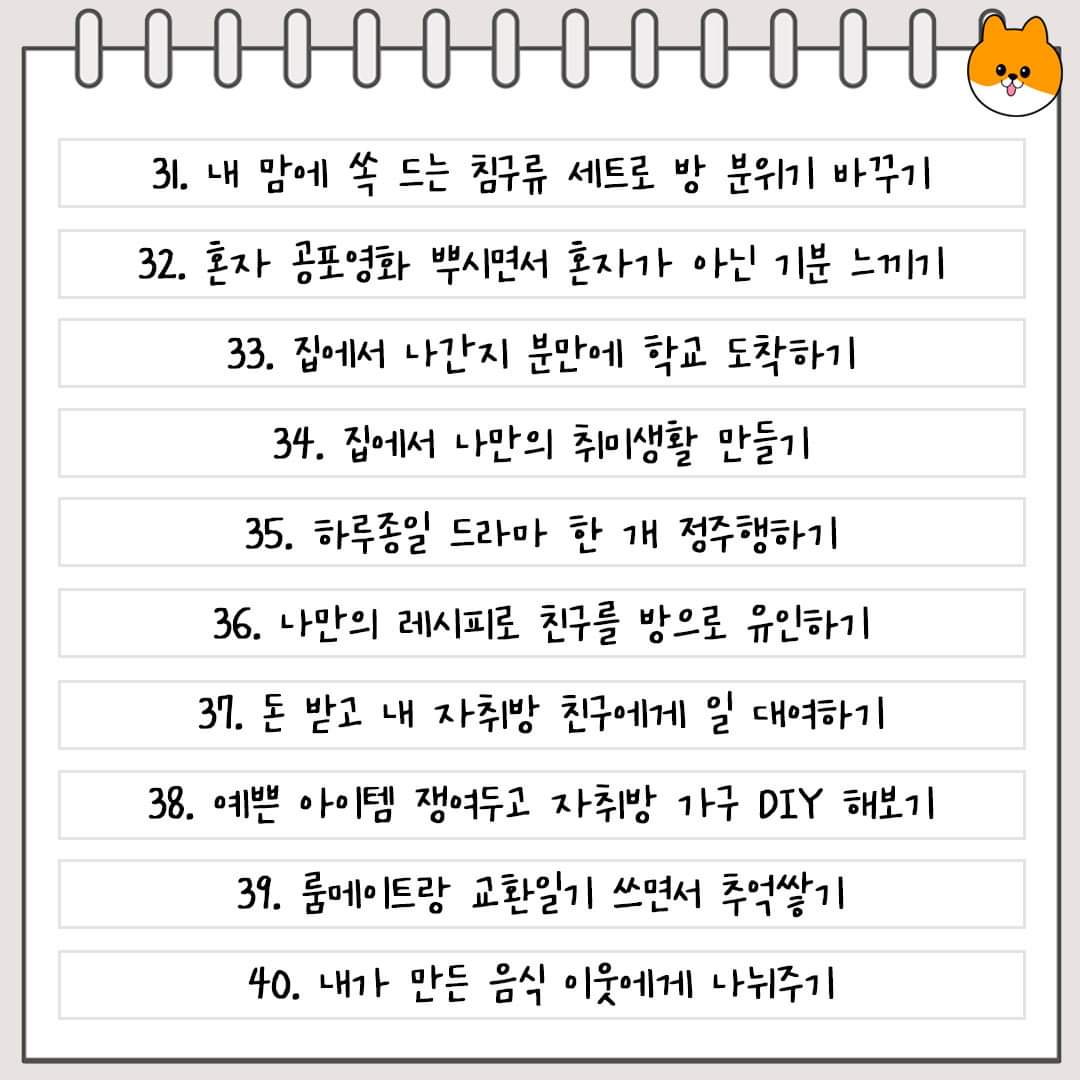 31. 내 맘에 쏙 드는 침구류 세트로 방 분위기 바꾸기
32. 혼자 공포영화 뿌시면서 혼자가 아닌 기분 느끼기
33. 집에서 나간지 분만에 학교 도착하기
34. 집에서 나만의 취미생활 만들기
35. 하루종일 드라마 한 개 정주행하기
36. 나만의 레시피로 친구를 방으로 유인하기
37. 돈 받고 내 자취방 친구에게 일 대여하기
38. 예쁜 아이템 쟁여두고 자취방 가구 DIY 해보기
39. 룸메이트랑 교환일기 쓰면서 추억쌓기
40. 내가 만든 음식 이웃에게 나눠주기